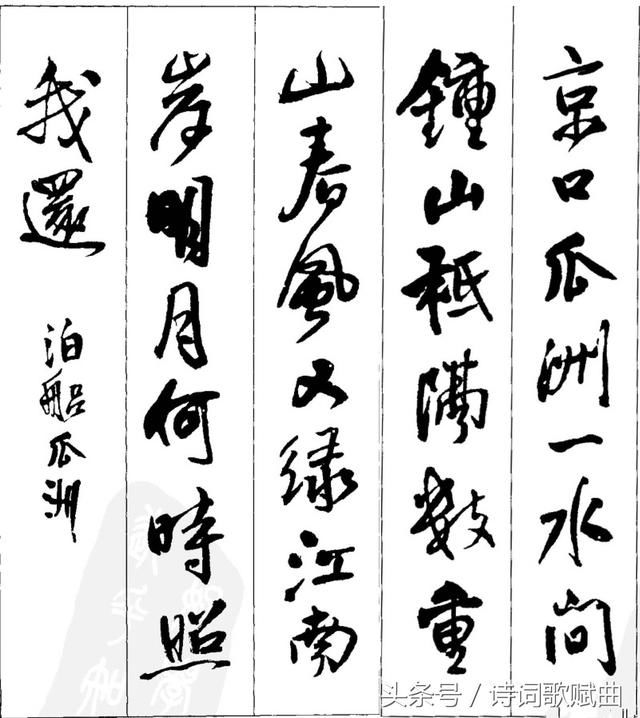 京口瓜洲一水间
鍾山秪隔數重
山春風又绿江南
岸明月何時照
我還
泊船瓜洲
头条号／诗词歌赋曲